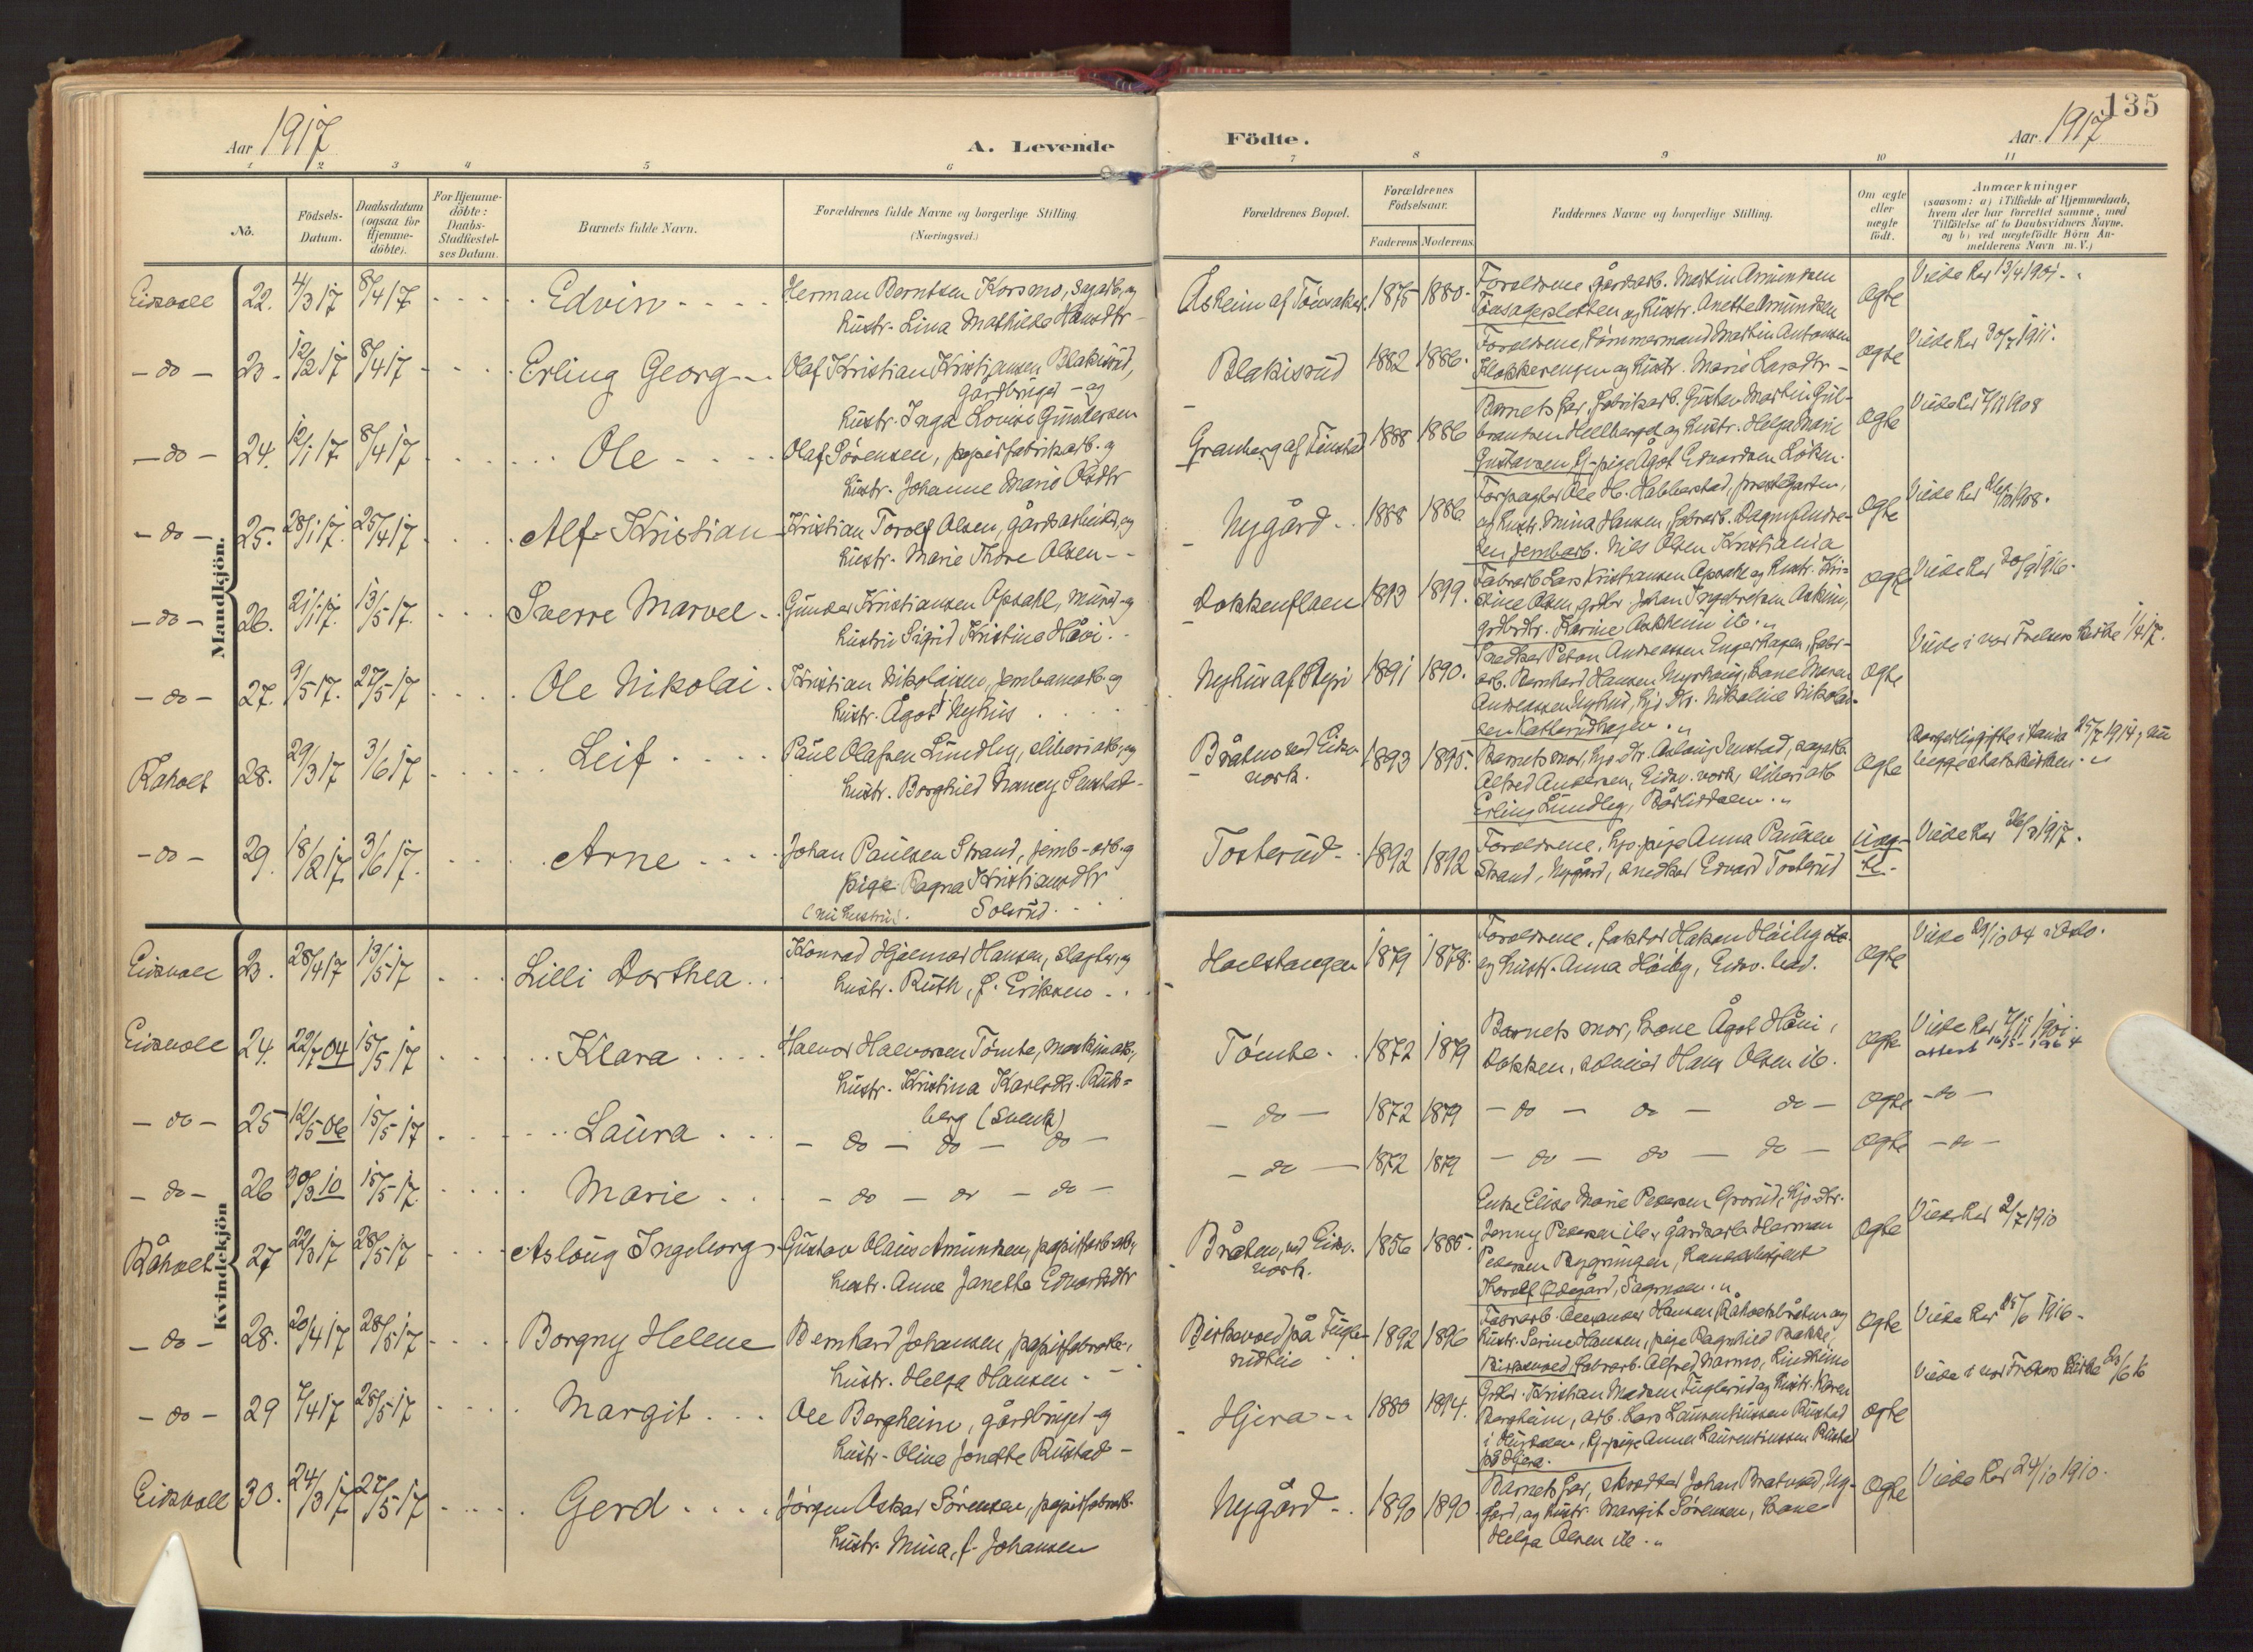 135
Aar 1917
A. Levende
Födte.
Aar 1917
1 2 3 4 5 6 7 8 9 10 11
No.
Födsels-Datum.
Daabsdatum (ogsaa for Hjemme-döbte).
For Hjemme-döbte: Daabs-Stadfæstel-ses Datum.
Barnets fulde Navn.
Forældrenes fulde Navne og borgerlige Stilling
(Næringsvei.)
Forældrenes Bopæl.
Forældrenes Födselsaar.
Faderens Moderens
Faddernes Navne og borgerlige Stilling.
Om ægte eller uægte födt.
Anmærkninger
(saasom: a) i Tilfælde af Hjemmedaab,
hvem der har forrettet samme, med
Tilföielse af to Daabsvidners Navne.
og b) ved uægtefödte Börn An-
melderens Navn m. V.)
Mandkjön.
Eidsvoll 22. 4/3 17 8/4 17 Edvin
Herman Berntsen Korsmo, sagarb. og
hustr. Lina Mathilde Hansdtr
Åsheim af Tönsaker 1875 1880.
Foreldrene, gårdarb. Martin Amundsen
og hustr. Anette Amundsen
ægte
Viede her 13/4 1901.
-do- 23. 12/2 17 8/4 17 Erling Georg
Olaf Kristian Kristiansen Blakisrud,
gårdbruger - og
hustr. Inga Lovise Gundersen
Blakisrud 1882 1886.
Foreldrene, tömmermand Martin Antonsen
Klokkerengen og hustr. Marie Larsdtr -
ægte
Viede her 30/7 1911.
-do- 24. 12/1 17 8/4 17 Ole
Olaf Sörensen, papirfabrikarb. og
hustr. Johanne Marie Olsdtr
Granberg af Finstad 1888 1886
Barnets far, fabrikarb. Gustav Martin Gul-
brandsen Hellberget og hustr. Helga Marie
Gustavsen, tj-pige Ågot Edvardsen Löken.
ægte
Viede her 1908
-do- 25. 28/1 17. 25/4 17 Alf Kristian
Kristian Torolf Olsen, gårdsarbeider, og
hustr. Marie Thore Olsen
Nygård 1888 1886
Forpagter Ole H. Habberstad, prestegarden,
og hustr. Mina Hansen, fabrarb. Dagny Andre-
sen, jernbarb. Nils Olsen Kristiania
ægte
Viede her 1908.
-do- 26. 21/1 17. 13/5 17. Sverre Marvel
Gunder Kristiansen Opsahl, murer og
hustru Sigrid Kristine Håvi.
Dokkenflaen 1893 1899.
Fabrarb Lars Kristiansen Opsahl og hustr. Kri-
stine Olsen, grdbr. Johan Ingebretsen Askim,
Karine Askheim ib.
ægte
Viede her 30/9 1916.
-do- 27. 9/5 17. 27/5 17 Ole Nikolai
Kristian Nikolaisen, jernbanearb. og
hustr. Ågot Nyhus
Nyhus af Styri 1891 1890.
Snedker Peton Andreassen Engerhagen, fabr-
arb. Bernhard Hansen Myrhaug, kone Maren
Andreassen Nyhus, hjv. dtr. Nikoline Nikolai-
sen
ægte
Viede i vor Frelsers kirke 1/4 17.
Råholt 28. 29/3 17 3/6 17 Leif
Paul Olafsen Lundby, sliberiarb. og
hustr. Borghild Nancy Senstad
Bråten ved Eidsv. verk. 1893 1895.
Barnets mor, hjv. dtr. Aslaug Senstad, sagarb.
Alfred Andersen, Eidsv. verk, sliberiarb
Erling Lundby, Bårlidalen.
ægte
Borgerlig gifte 25/7 1914, nu
begge i statskirken.
-do- 29. 18/2 17 3/6 17. Arne
Johan Paulsen Strand, jernb-arb. og
pige Ragna Kristiansdtr
(nu hustru). Solerud.
Tosterud 1892 1892
Foreldrene, hjv. pige Anna Paulsen
Strand, Nygård, snedker Edvard Tosterud
uæg-
te.
Viede her 26/3 1917.
Kvindekjön
Eidsvoll 23. 28/4 17 13/5 17 Lilli Dorthea
Konrad Hjalmar Hansen, slagter, og
hustr. Ruth, f. Eriksen
Holstangen 1879 1878.
Foreldrene, faktor Hakon Höiby
og hustr. Anna Höiby, Eidsv. bad.
ægte
Viede 29/10 04 i Oslo.
Eidsvoll 24. 22/7 04 15/5 17 Klara
Halvor Halvorsen Tömte, maskinarb.,
hustr. Kristina Karlsdtr. Rud-
berg (svensk)
Tömte 1872 1879
Barnets mor, kone Ågot Håvi,
Dokken, Hans Olsen ib.
ægte
Viede her 1901.
attest
-do- 25 12/5 06 15/5 17 Laura
- do - do - do -
- do - 1872 1879
- do - do - do -
ægte
- do -
-do- 26 30/3 10 15/5 17 Marie
- do - do - do -
- do - 1872 1879
- do - do - do -
ægte
- do -
Råholt 27 22/3 17 28/5 17 Aslaug Ingeborg
Gustav Olaus Amundsen, papirfabr-arb.,
hustr. Anne Janette Edvardsdtr
Bråten, ved Eidsv. verk. 1856 1885.
Enke Elise Marie Pedersen Grorud, hjv. dtr.
Jenny Pedersen ib., gårdarb. Herman
Pedersen Bygningen,
Thorolf Ödegård, Sagmoen.
ægte
Viede her 2/7 1910
-do- 28. 20/4 17 28/5 17 Borgny Helene
Bernhard Johansen, papirfabrarb.,
hustr. Helga Hansen
Birkevold på Fugle-
rudhei 1892 1896
Fabrarb. Alexander Hansen Råholtbråten og
hustr. Serine Hansen, pige Ragnhild Bakke,
Birkevold, fabrarb. Alfred Narmo, Lindheim
ægte
Viede her 25/6 1916.
-do- 29 7/4 17 28/5 17 Margit
Ole Bergheim, gårdbruger og
hustr. Oline Jonette Rustad -
Hjera 1880 1894.
Grdbr. Kristian Madsen Fuglerud og hustr. Karen
Bergheim, arb. Lars Laurentiussen Rustad
i Hurdalen, tj-pige Anna Laurentiussen Rustad
på Hjera.
ægte
Viede i vor Frelsers kirke 6/16
Eidsvoll 30. 24/3 17 27/5 17 Gerd
Jörgen Oskar Sörensen, papirfabrarb.
hustr. Mina, f. Johansen
Nygård 1890 1890
Barnets far, skredder Johan Bratvold, Ny-
gård, og hustr. Margit Sörensen, kone
Helga Olsen ib.
ægte
Viede her 24/10 1910.